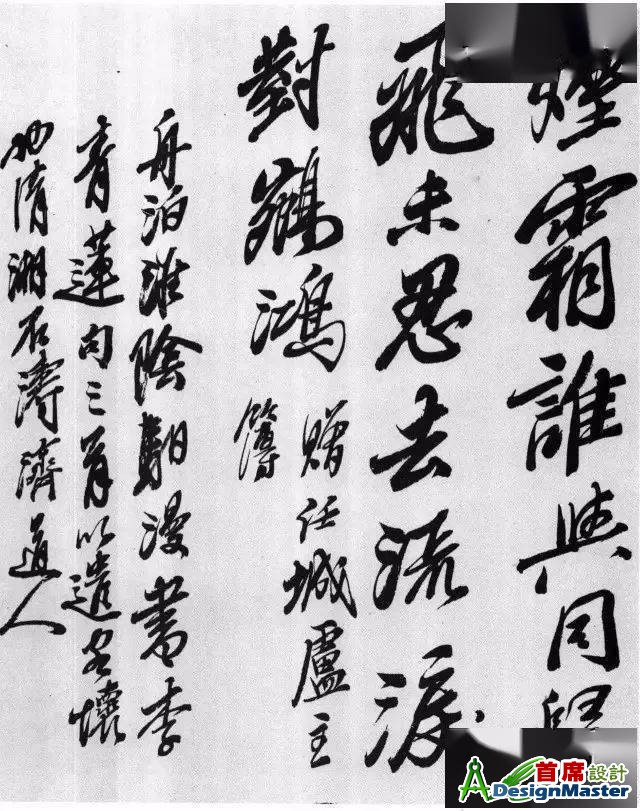 煙霜誰與同歸
飛未忍去流淚
對鵷鴻
贈任城盧主
簿
舟泊淮陰漫書李
青蓮句三首以遣客懷
清湘石濤濟道人
首席設計
DesignMaster